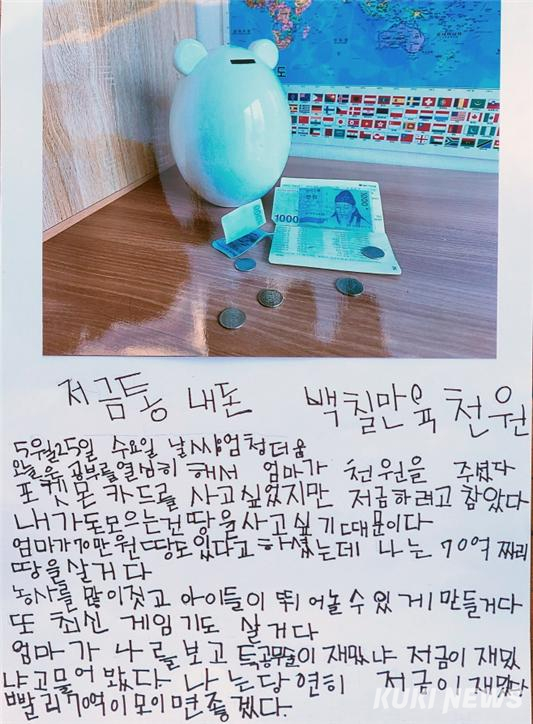 KUKI NEWS
1000
1000
저금통 내돈 백칠만육천원
5월25일 수요일 날씨:엄청더움
오늘은 공부를열심히 해서 엄마가 천원을 주셨다
포켓몬 카드를 사고싶었지만 저금하려고 참았다
내가돈모으는건 땅을사고싶기때문이다
엄마가70만원 땅도있다고하셨는데 나는 70억 짜리
땅을살거다
농사를 많이짓고 아이들이 뛰어놀수있게만들거다
또 최신 게임기도 살거다
엄마가 나를보고 특공무술이 재밌냐 저금이 재밌
냐고물어 봤다 나는당연히 저금이 재밌다
빨리70억이모이면좋겠다.
KUKI NEWS